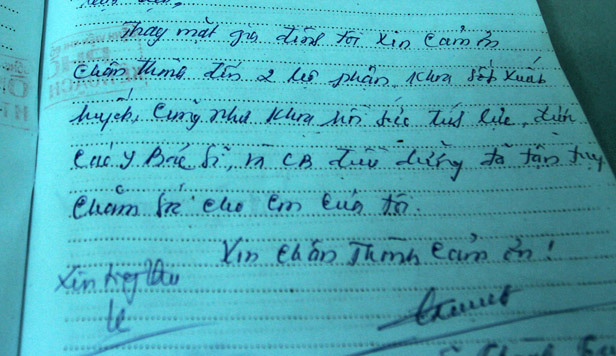 Thay mặt gia đình tôi xin cảm ơn
chân thành đến 2 bộ phận khoa sốt xuất
huyết, cũng như khoa hồi sức tích cực, đến
các y Bác Sĩ, và CB điều dưỡng đã tận tuỵ
chăm sóc cho em của tôi.
Xin chân thành cảm ơn!